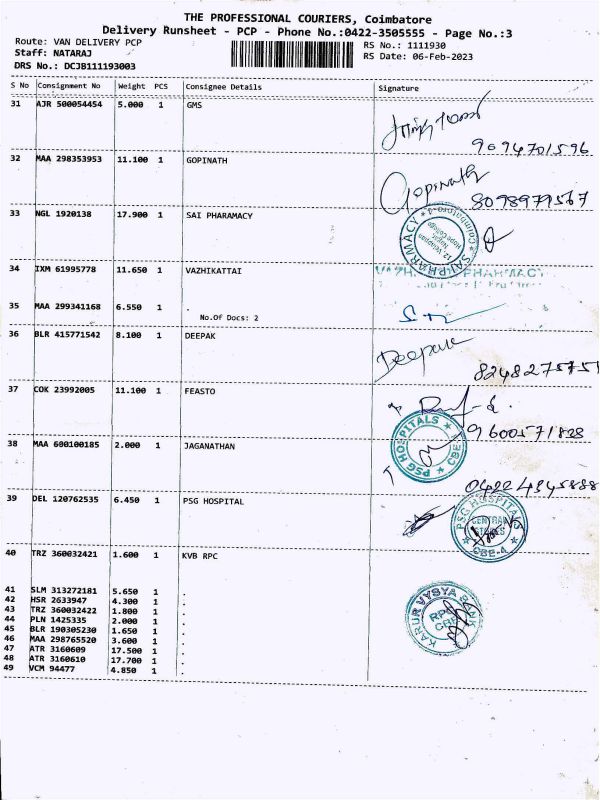 THE PROFESSIONAL COURIERS, Coimbatore
Delivery Runsheet - PCP - Phone No.:0422-3505555 - Page No.:3
Route: VAN DELIVERY PCP
RS No.: 1111930
Staff: NATARAJ
RS Date: 06-Feb-2023
DRS No.: DCJB111193003
S No Consignment No Weight PCS Consignee Details Signature
31 AJR 500054454 5.000 1 GMS
9094701596
32 MAA 298353953 11.100 1 GOPINATH
Gopinath
8098979567
33 NGL 1920138 17.900 1 SAI PHARAMACY
SAI PHARMACY * Coimbatore-4 *
34 IXM 61995778 11.650 1 VAZHIKATTAI
PHARMACY
35 MAA 299341168 6.550 1 .
No.Of Docs: 2
36 BLR 415771542 8.100 1 DEEPAK
Deepak
8248275751
37 COK 23992005 11.100 1 FEASTO
9600571828
PSG HOSPITALS * CBE *
38 MAA 600100185 2.000 1 JAGANATHAN
04224345888
39 DEL 120762535 6.450 1 PSG HOSPITAL
PSG HOSPITALS
CENTRAL STORES
CBE-4
40 TRZ 360032421 1.600 1 KVB RPC
KARUR VYSYA BANK
RPC
CBE
41 SLM 313272181 5.650 1 .
42 HSR 2633947 4.300 1 .
43 TRZ 360032422 1.800 1 .
44 PLN 1425335 2.000 1 .
45 BLR 190305230 1.650 1 .
46 MAA 298765520 3.600 1 .
47 ATR 3160609 17.500 1 .
48 ATR 3160610 17.700 1 .
49 VCM 94477 4.850 1 .